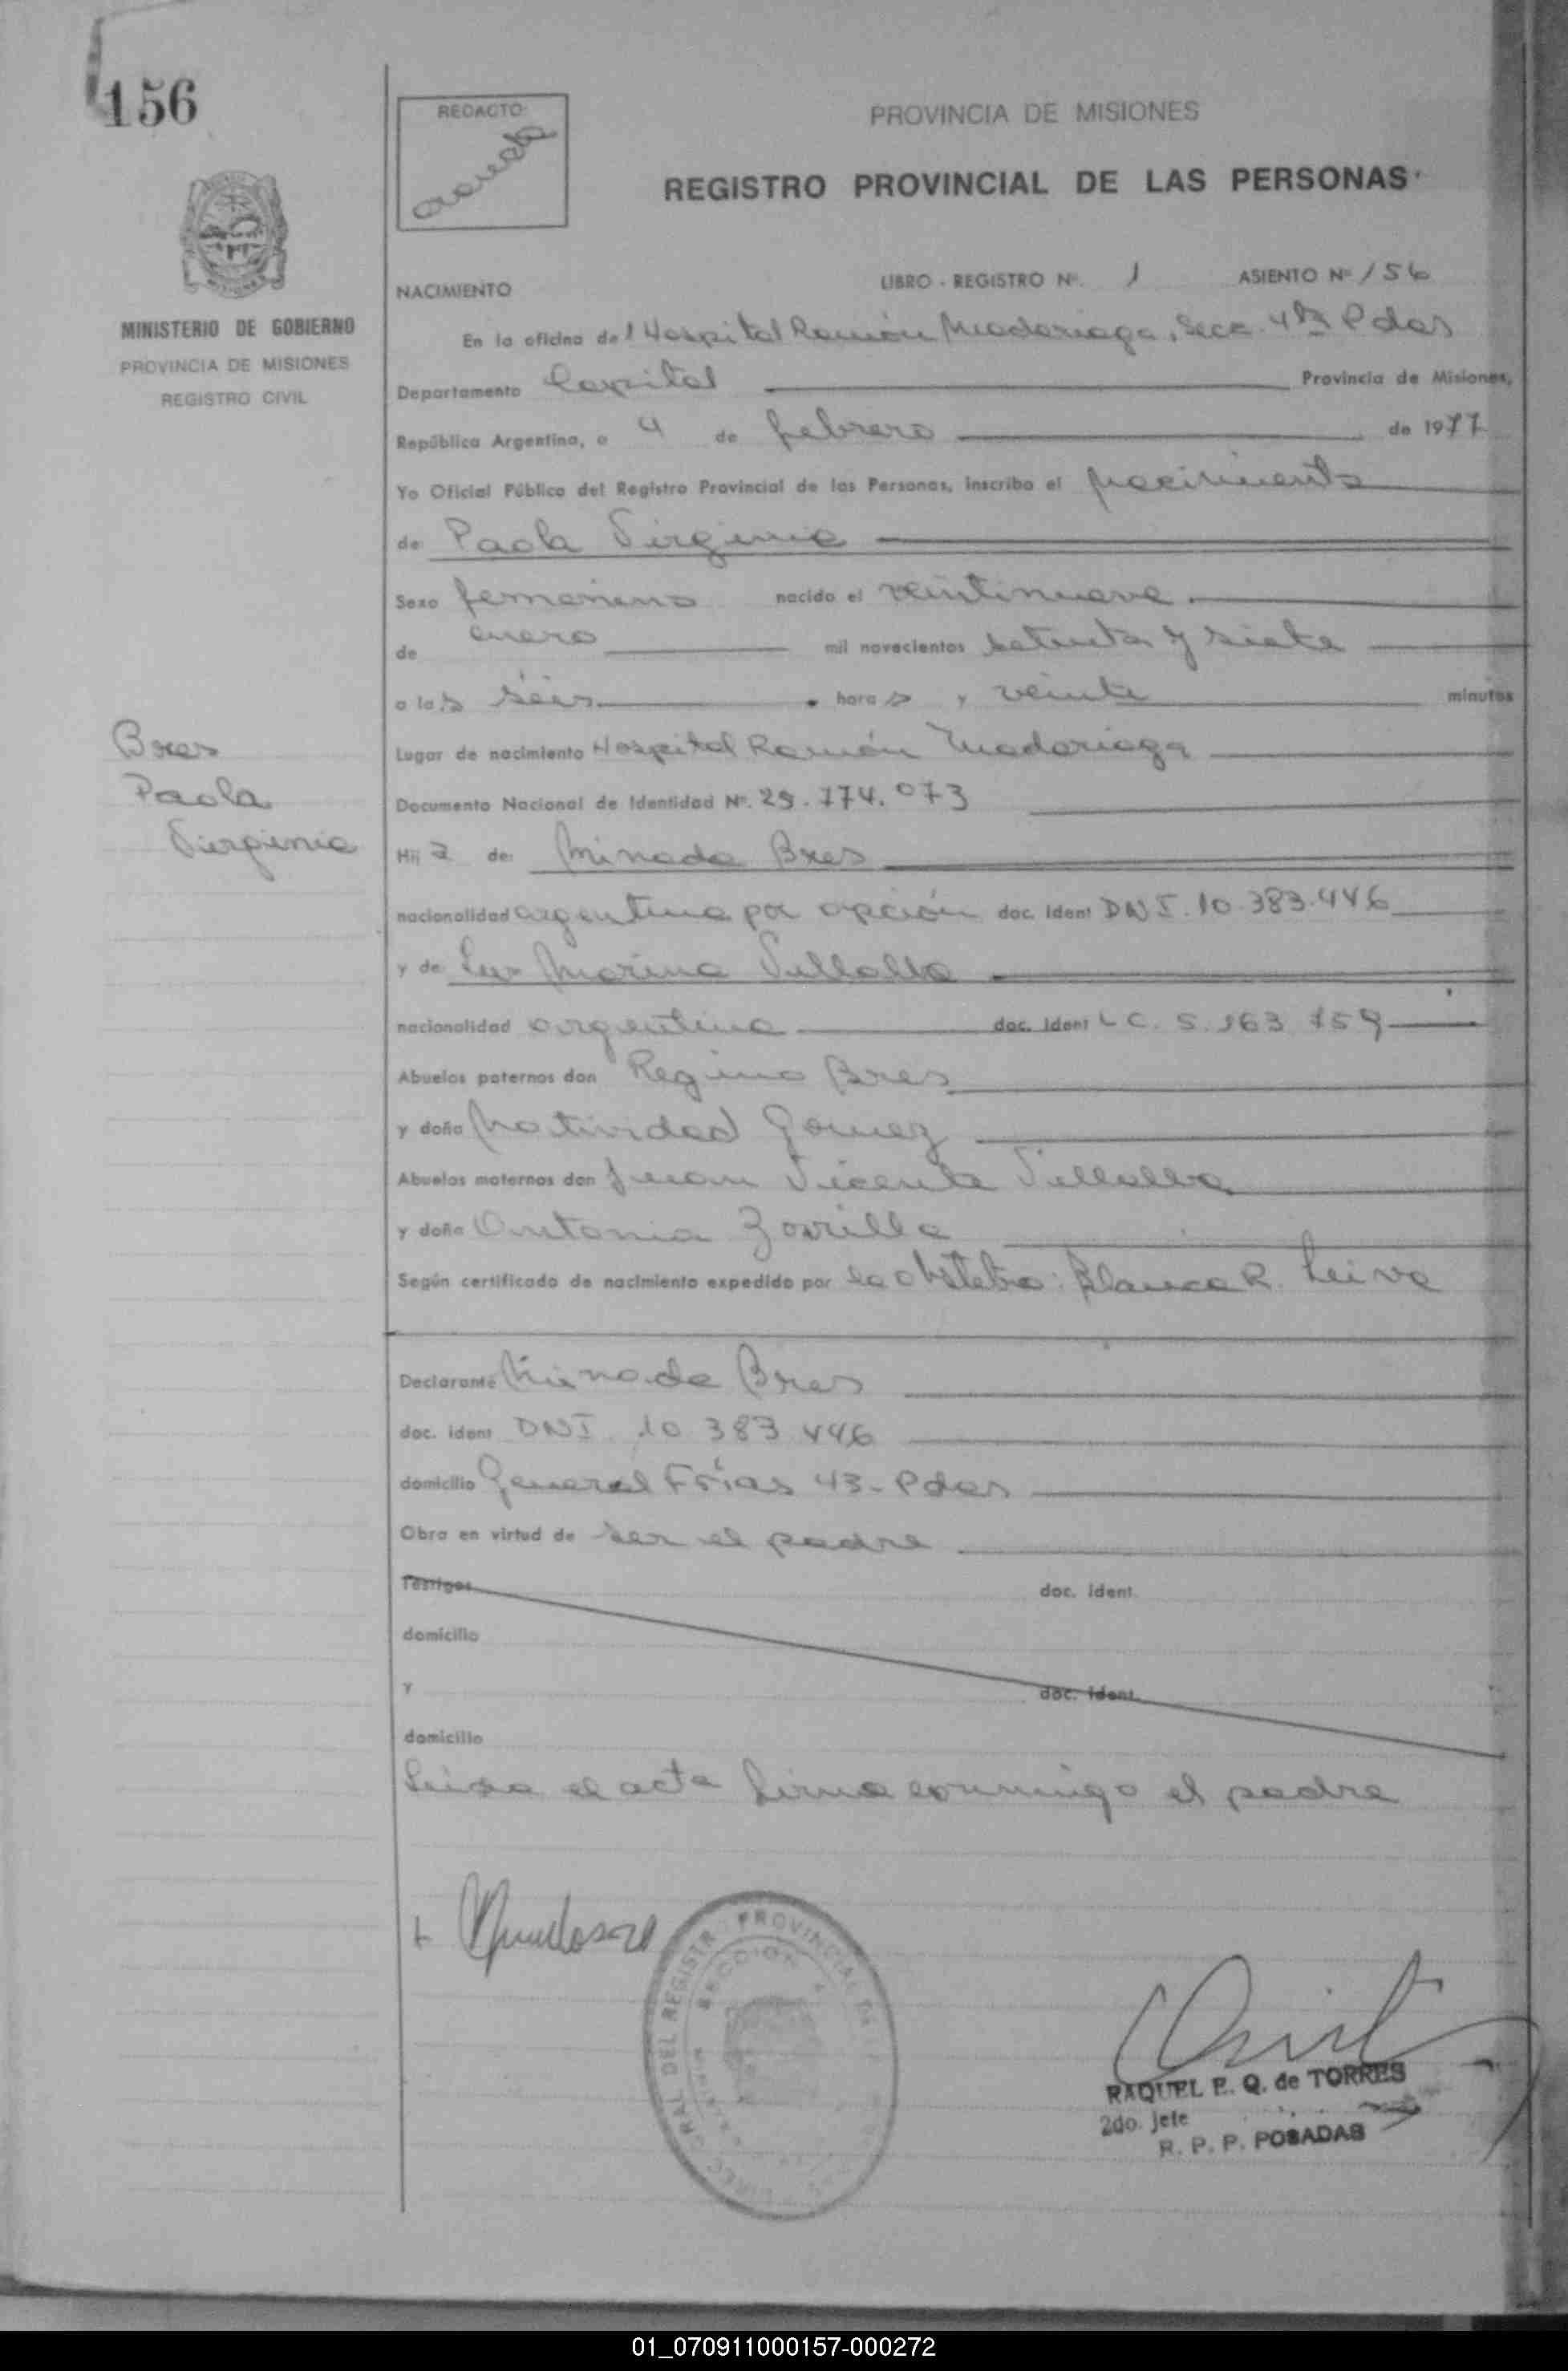 156
REDACTO
PROVINCIA DE MISIONES
REGISTRO PROVINCIAL DE LAS PERSONAS
MINISTERIO DE GOBIERNO
PROVINCIA DE MISIONES
REGISTRO CIVIL
NACIMIENTO LIBRO - REGISTRO Nº. 1 ASIENTO Nº 156
En la oficina del Hospital Ramón Madariaga, Secc. 4ta Pdas
Departamento Capital Provincia de Misiones,
República Argentina, a 4 de febrero de 1977
Yo Oficial Público del Registro Provincial de las Personas, inscribo el nacimiento
de Paola Virginia
Sexo femenino nacido el veintinueve
de enero mil novecientos setenta y siete
a las seis horas y veinte minutos
Bres
Paola
Virginia
Lugar de nacimiento Hospital Ramón Madariaga
Documento Nacional de Identidad Nº. 25.774.073
Hija de: Minada Bres
nacionalidad argentina por opción doc. ident DNI. 10.383.446
y de Luz Marina Villalba
nacionalidad argentina doc. ident LC. 5.163.759
Abuelos paternos don Regino Bres
y doña Natividad Gomez
Abuelos maternos don Juan Vicente Villalba
y doña Antonia Zorrilla
Según certificado de nacimiento expedido por la obstetra: Blanca R. Leiva
Declarante Minada Bres
doc. ident DNI 10 383 446
domicilio General Frías 43 - Pdas
Obra en virtud de ser el padre
Testigos doc. ident.
domicilio
y doc. ident.
domicilio
Leida el acta firma conmigo el padre
DIREC RAL DEL REGISTR PROVINCIAL DE
SECCION
RAQUEL E. Q. de TORRES
2do. Jefe
R. P. P. POSADAS
01_070911000157-000272